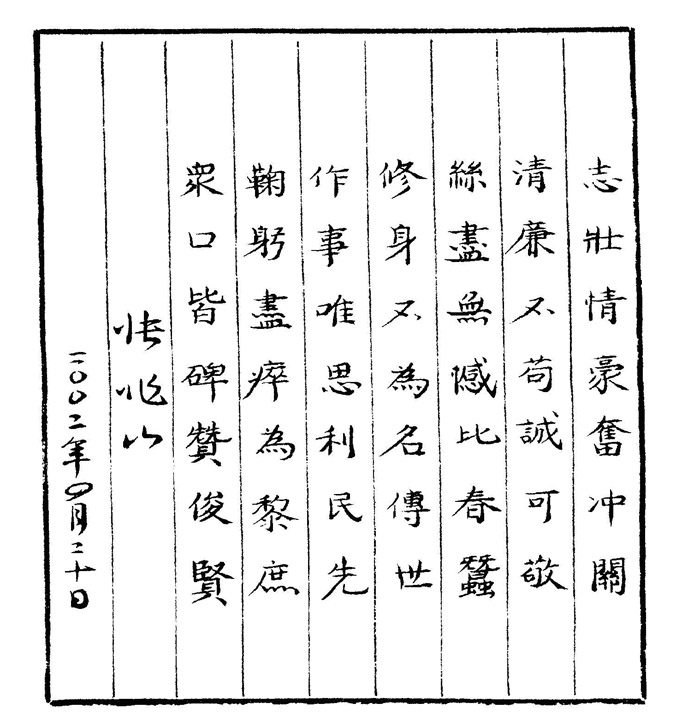 志壯情豪奮冲關
清廉不苟誠可敬
絲盡無憾比春蠶
修身不為名傳世
作事唯思利民先
鞠躬盡瘁為黎庶
衆口皆碑贊俊賢
二〇〇二年四月二十日